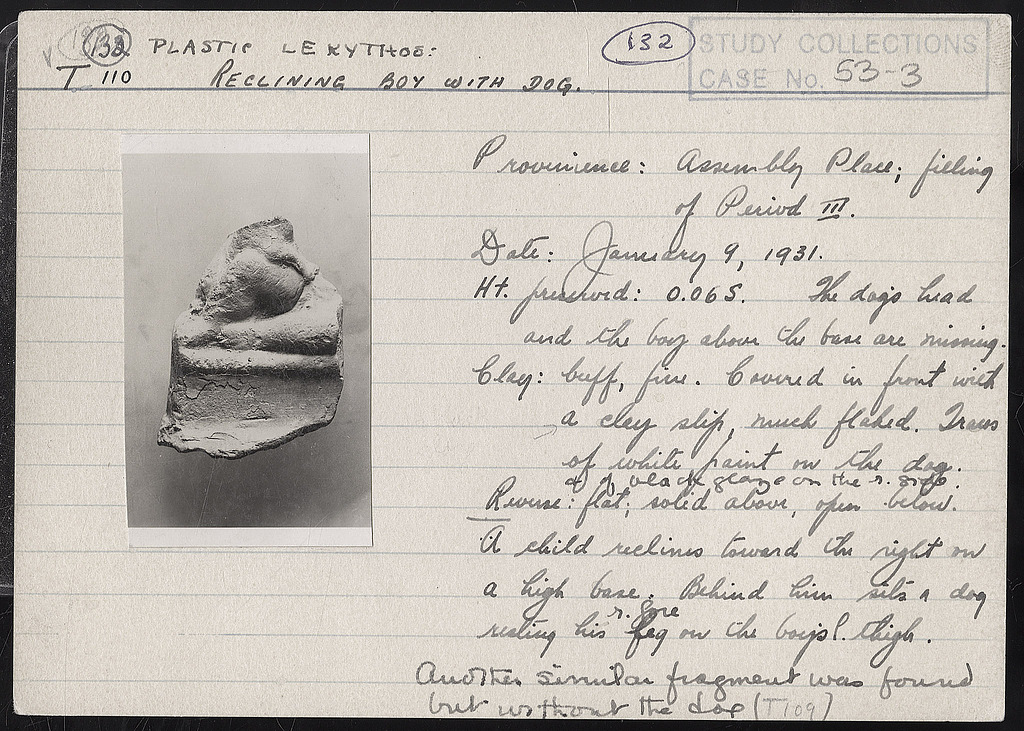 132 PLASTIC LEKYTHOS:
132
STUDY COLLECTIONS
T 110 RECLINING BOY WITH DOG.
CASE No. 53-3
Provenience: Assembly Place; filling
of Period III.
Date: January 9, 1931.
Ht. preserved: 0.065. The dog's head
and the boy above the base are missing.
Clay: buff, fine. Covered in front with
a clay slip, much flaked. Traces
of white paint on the dog.
& of black glaze on the r. side.
Reverse: flat; solid above, open below.
A child reclines toward the right on
a high base. Behind him sits a dog
r. fore
resting his leg on the boy's l. thigh.
Another similar fragment was found
but without the dog (T109)